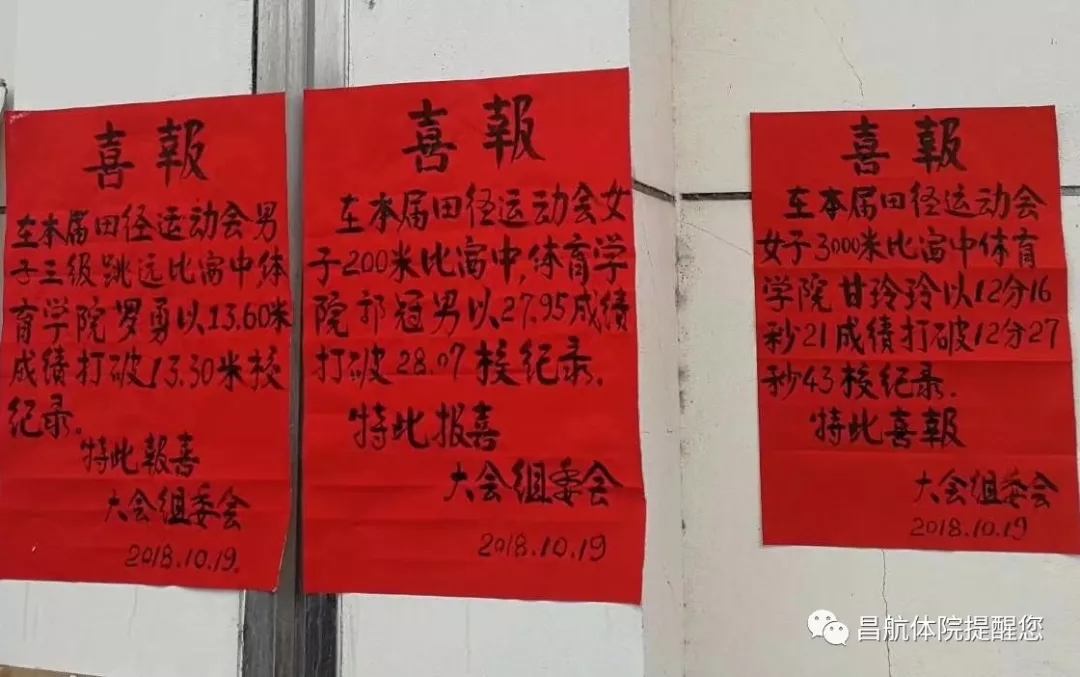 喜報
在本届田径运动会男
子三级跳远比赛中,体
育学院罗勇以13.60米
成绩打破13.30米校
纪录.
特此報喜
大会组委会
2018.10.19.
喜報
在本届田径运动会女
子200米比赛中,体育学
院郭冠男以27.95成绩
打破28.07校纪录.
特此报喜
大会组委会
2018.10.19
喜報
在本届田径运动会
女子3000米比赛中体育
学院甘玲玲以12分16
秒21成绩打破12分27
秒43校纪录.
特此喜報
大会组委会
2018.10.19
昌航体院提醒您